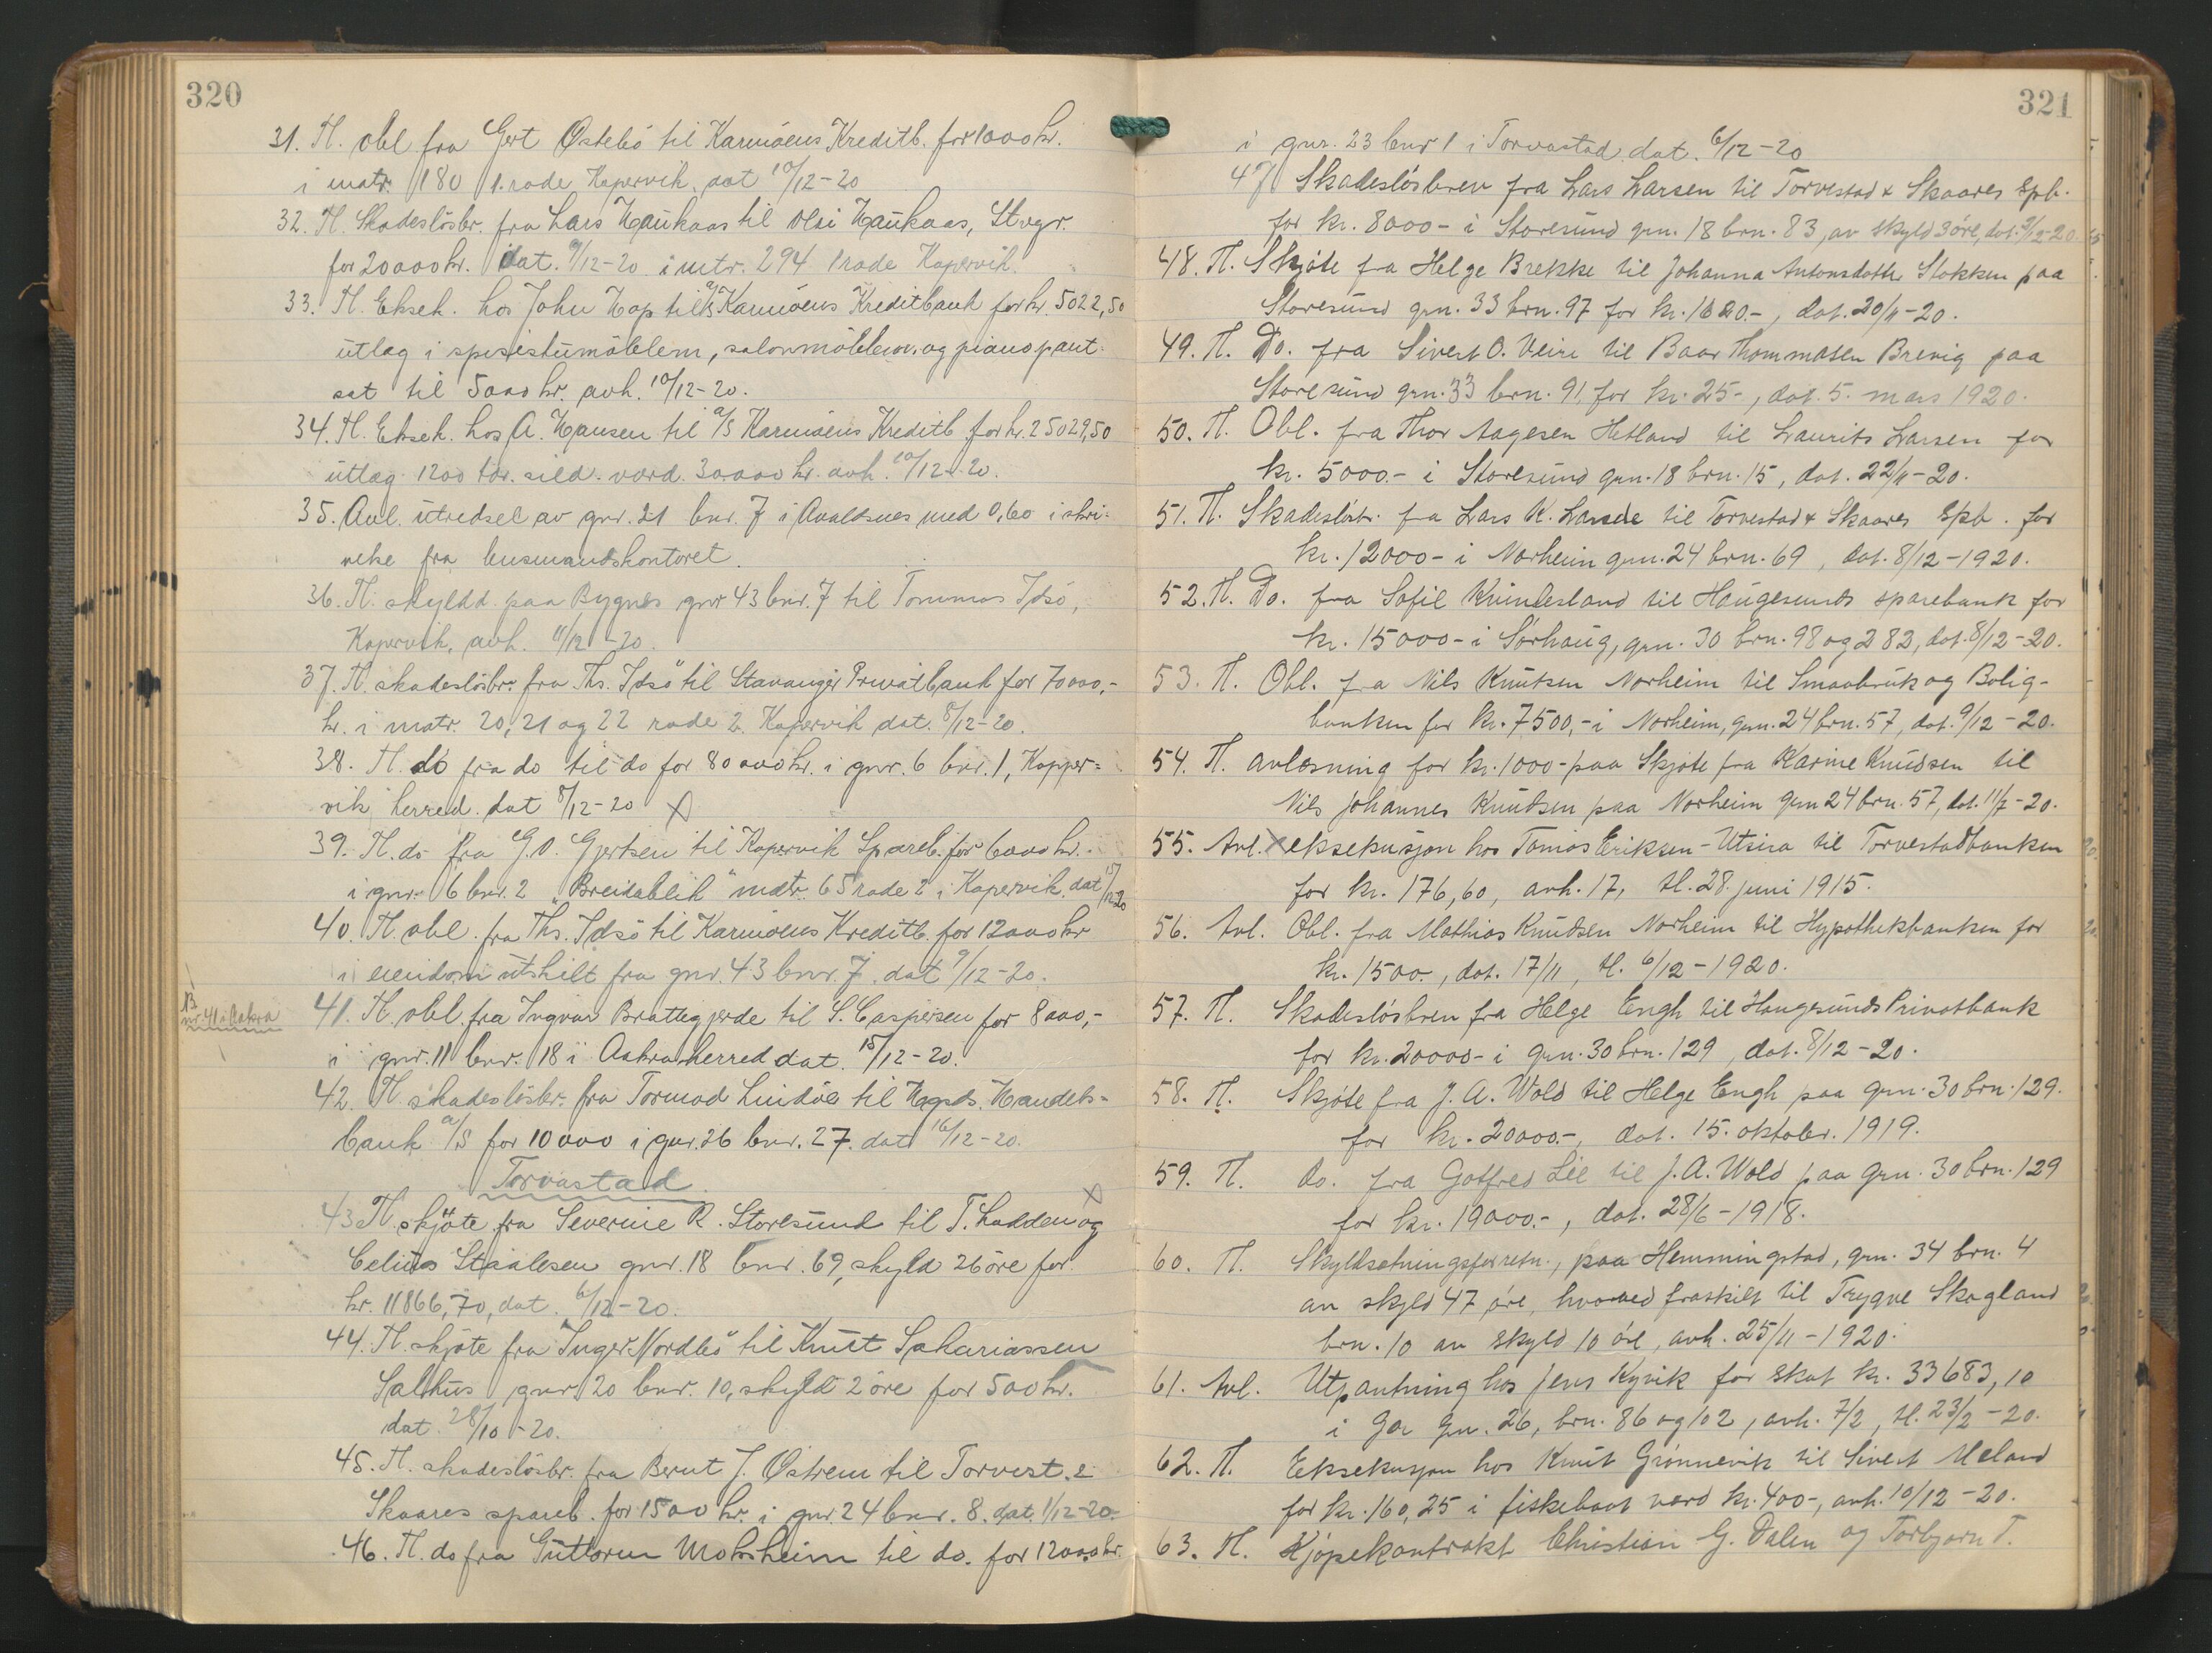 320
31. Tl. obl. fra Gert Østebö til Karmöens Kreditb. for 1000 kr.
i matr. 180 1. rode Kopervik, dat 10/12-20
32. Tl. Skadeslösbr. fra Lars Haukaas til Olai Haukaas, Stvgr.
for 20000 kr. dat. 9/12-20 i mtr. 294 1 rode Kopervik.
33. Tl. Eksek. hos John Hop til A/S Karmöens Kreditbank for kr. 5022,50
utlæg i spisestumöblem., salonmöblem. og piano pant-
sat til 5000 kr. avh. 10/12-20.
34. Tl. Eksek. hos A. Hansen til A/S Karmöens Kreditb. for kr. 25029,50
utlæg 1200 tdr. sild. værd. 30.000 kr. avh. 10/12-20.
35. Avl. utredsel av gnr. 21 bnr. 7 i Avaldsnes med 0,60 i skri-
velse fra lensmandskontoret.
36. Tl. skyldd. paa Bygnes gnr 43 bnr. 7 til Tommas Idsö,
Kopervik, avh. 11/12-20.
37. Tl. skadeslösbr. fra Ths. Idsö til Stavanger Privatbank for 70000,-
kr. i matr. 20, 21 og 22 rode 2. Kopervik dat. 8/12-20.
38. Tl. do fra do til do for 80000 kr. i gnr. 6 bnr. 1, Kopper-
vik herred. dat 8/12-20 X
39. Tl. do fra G. O. Gjertsen til Kopervik Spareb. for 6000 kr.
i gnr. 6 bnr. 2 "Breidablik" matr. 65 rode 2 i Kopervik. dat 15/12-20
40. Tl. obl. fra Ths. Idsö til Karmöens Kreditb. for 12000 kr
i eiendom utskilt fra gnr. 43 bnr. 7. dat 9/12-20.
nr. 41 i Aakra
41. Tl. obl. fra Ingvar Brattegjerde til S. Caspersen for 8000,-
i gnr. 11 bnr. 18 i Aakra herred dat. 15/12-20.
42. Tl. skadeslösbr. fra Tormod Lindöe til Hgsds. Handels-
bank A/S for 10000 i gnr. 26 bnr. 27. dat 16/12-20.
Torvastad
43 Tl. skjöte fra Severine R. Storesund til T. Lodden og X
Celius Staalesen gnr. 18 bnr. 69, skyld 26 öre for
kr. 11866,70, dat. 6/12-20.
44. Tl. skjöte fra Inger Nordbö til Knut Sakariassen
Salhus gnr. 20 bnr. 10, skyld 2 öre for 500 kr.
dat. 28/10-20.
45. Tl. skadeslösbr. fra Bernt J. Østrem til Torvest. &
Skaares spareb. for 1500 kr. i gnr. 24 bnr. 8. dat. 1/12-20.
46. Tl. do fra Guttorm Moksheim til do. for 12000 kr.
321
i gnr. 23 bnr 1 i Torvastad dat. 6/12-20
47 Skadeslösbrev fra Lars Larsen til Torvestad & Skaares Spb.
for kr. 8000- i Storesund grn. 18 brn. 83, av skyld 3 öre, dat. 9/12-20.
48. Tl. Skjöte fra Helge Brekke til Johanna Antonsdatter Stokken paa
Storesund grn. 33 brn. 97 for kr. 1620.-, dat. 20/11-20.
49. Tl. Do. fra Sivert O. Veire til Baar Thommasen Brevig paa
Storesund grn. 33 brn. 91, for kr. 25-, dat. 5. mars 1920.
50. Tl. Obl. fra Thor Aagesen Hetland til Laurits Larsen for
kr. 5000.- i Storesund grn. 18 brn. 15, dat. 22/11-20.
51. Tl. Skadeslösbr. fra Lars K. Larsde til Torvestad & Skaares Spb. for
kr. 12000- i Norheim grn. 24 brn. 69, dat. 8/12-1920.
52. Tl. Do. fra Sofil Kvindesland til Haugesunds sparebank for
kr. 15000- i Sörhaug, grn. 30 brn. 98 og 282, dat. 8/12-20.
53. Tl. Obl. fra Nils Knutsen Norheim til Smaabruk og Bolig-
banken for kr. 7500,- i Norheim, grn. 24 brn. 57, dat. 9/12-20.
54. Tl. avlæsning for kr. 1000- paa Skjöte fra Karine Knudsen til
Nils Johannes Knudsen paa Norheim grn 24 brn. 57, dat. 11/7-20.
55. Avl. X eksekusjon hos Tomas Eriksen - Utsira til Torvestadbanken
for kr. 176,60, avh. 17, tl. 28. juni 1915.
56. Avl. Obl. fra Mathias Knudsen Norheim til Hypothekbanken for
kr. 1500-, dat. 17/11, tl. 6/12-1920.
57. Tl. Skadeslösbrev fra Helge Engh til Haugesunds Privatbank
for kr. 20000- i grn. 30 brn. 129, dat. 8/12-20.
58. Tl. Skjöte fra J. A. Wold til Helge Engh paa grn. 30 brn. 129.
for kr. 20000.-, dat. 15. oktober. 1919.
59. Tl. do. fra Gotfred Lie til J. A. Wold paa grn. 30 brn. 129
for kr. 19000.-, dat. 28/6-1918.
60. Tl. Skyldsetningsforretn., paa Hemmingstad, grn. 34 brn. 4
av skyld 47 øre, hvorved fraskilt til Trygve Skogland
brn. 10 av skyld 10 öre, avh. 25/11-1920.
61. Avl. Utpantning hos Jens Kyvik for skat kr. 33683,10
i Gar grn. 26, brn. 86 og 102, avh. 7/2, tl. 23/2-20.
62. Tl. Eksekusjon hos Knut Grönnevik til Sivert Meland
for kr. 160,25 i fiskebaat værd kr. 400-, avh. 10/12-20.
63. Tl. Kjøpekontrakt Christian G. Dalen og Torbjørn T.